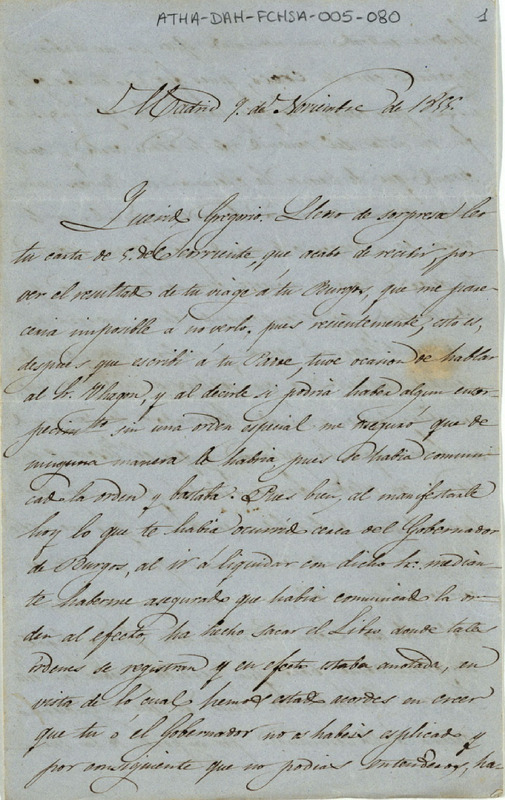 ATHA-DAH-FCHSA-005-080
1
Madrid 9. de Noviembre de 1855.
Querido Gregorio. Lleno de sorpresa leo
tu carta de 5. del corriente, que acabo de recibir, por
ver el resultado de tu viage á tu Burgos, que me pare-
ceria imposible a no verlo, pues recientemente, esto es,
despues que escribi á tu Padre, tuve ocasion de hablar
al Sr. y al decirle si podria haber algun entor-
pecimto. sin una orden especial me aseguró que de
ninguna manera le habria pues se habia comuni-
cado la orden y bastaba. Pues bien, al manifestarle
hoy lo que te habia ocurrido cerca del Gobernador
de Burgos, al ir á liquidar con dicho Sr. median-
te haberme asegurado que habia comunicado la or-
den al efecto, ha hecho sacar el Libro donde tales
ordenes se registran y en efecto estaba anotada, en
vista de lo cual hemos estado acordes en creer
que tu ó el Gobernador no os habeis esplicado y
por consiguiente que no podias entenderos, ha-